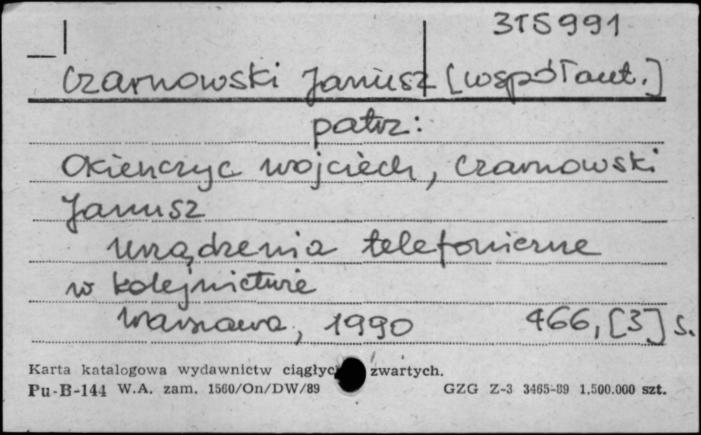 315991
Czarnowski Janusz [współaut.]
patrz:
Okieńczyc Wojciech, Czarnowski
Janusz
Urządzenia telefoniczne
w kolejnictwie
Warszawa, 1990 466, [3] s.
Karta katalogowa wydawnictw ciągłyc zwartych.
Pu-B-144 W.A. zam. 1560/On/DW/89 GZG Z-3 3465-89 1,500.000 szt.